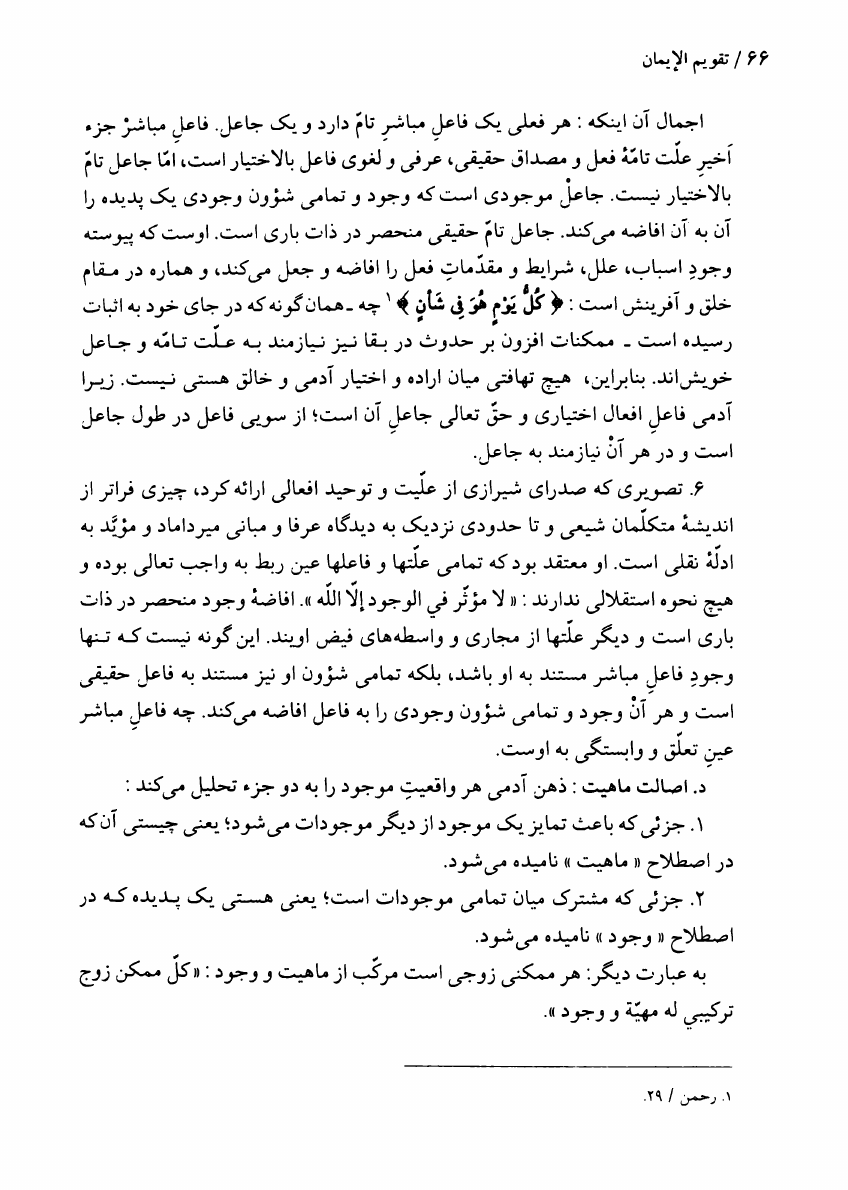 ۶۶ / تقویم الإیمان
اجمال آن اینکه : هر فعلی یک فاعلِ مباشرِ تامّ دارد و یک جاعل. فاعلِ مباشرْ جزء
اَخیرِ علّت تامّهٔ فعل و مصداق حقیقی، عرفی و لغوی فاعل بالاختیار است، امّا جاعل تامّ
بالاختیار نیست. جاعلْ موجودی است که وجود و تمامی شؤون وجودی یک پدیده را
آن به آن افاضه می‌کند. جاعل تامّ حقیقی منحصر در ذات باری است. اوست که پیوسته
وجودِ اسباب، علل، شرایط و مقدّماتِ فعل را افاضه و جعل می‌کند، و هماره در مقام
خلق و آفرینش است : ﴿ كُلُّ يَوْمٍ هُوَ فِي شَأْنٍ ﴾۱ چه ـ همان‌گونه که در جای خود به اثبات
رسیده است ـ ممکنات افزون بر حدوث در بقا نیز نیازمند به علّت تامّه و جاعل
خویش‌اند. بنابراین، هیچ تهافتی میان اراده و اختیار آدمی و خالق هستی نیست. زیرا
آدمی فاعلِ افعال اختیاری و حقّ تعالی جاعلِ آن است؛ از سویی فاعل در طول جاعل
است و در هر آنْ نیازمند به جاعل.
۶. تصویری که صدرای شیرازی از علّیت و توحید افعالی ارائه کرد، چیزی فراتر از
اندیشهٔ متکلّمان شیعی و تا حدودی نزدیک به دیدگاه عرفا و مبانی میرداماد و مؤیَّد به
ادلّهٔ نقلی است. او معتقد بود که تمامی علّتها و فاعلها عین ربط به واجب تعالی بوده و
هیچ نحوه استقلالی ندارند : « لا مؤثّر في الوجود إلّا اللّه ». افاضهٔ وجود منحصر در ذات
باری است و دیگر علّتها از مجاری و واسطه‌های فیض اویند. این گونه نیست که تنها
وجودِ فاعلِ مباشر مستند به او باشد، بلکه تمامی شؤون او نیز مستند به فاعل حقیقی
است و هر آنْ وجود و تمامی شؤون وجودی را به فاعل افاضه می‌کند. چه فاعلِ مباشر
عینِ تعلّق و وابستگی به اوست.
د. اصالت ماهیت : ذهن آدمی هر واقعیتِ موجود را به دو جزء تحلیل می‌کند :
۱. جزئی که باعث تمایز یک موجود از دیگر موجودات می‌شود؛ یعنی چیستی آن که
در اصطلاح « ماهیت » نامیده می‌شود.
۲. جزئی که مشترک میان تمامی موجودات است؛ یعنی هستی یک پدیده که در
اصطلاح « وجود » نامیده می‌شود.
به عبارت دیگر: هر ممکنی زوجی است مرکّب از ماهیت و وجود : « کلّ ممکن زوج
ترکیبي له مهیّة و وجود ».
۱. رحمن / ۲۹.